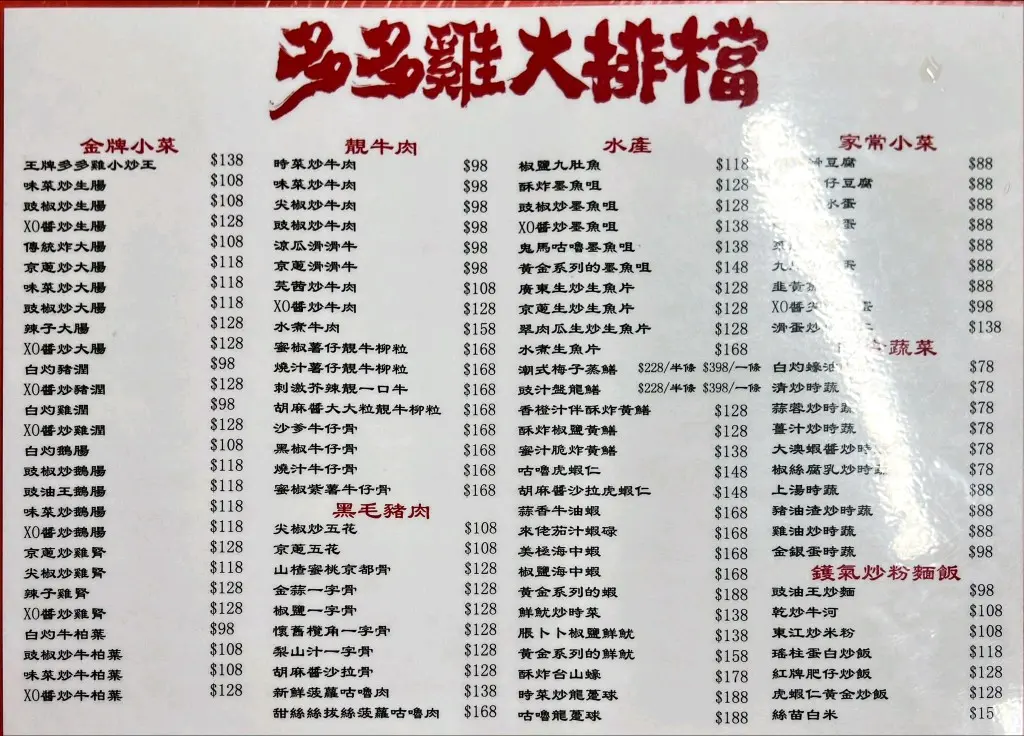 多多雞大排檔
金牌小菜
王牌多多雞小炒王 $138
味菜炒生腸 $108
豉椒炒生腸 $108
XO醬炒生腸 $128
傳統炸大腸 $108
京蔥炒大腸 $118
味菜炒大腸 $118
豉椒炒大腸 $118
辣子大腸 $128
XO醬炒大腸 $128
白灼豬潤 $98
XO醬炒豬潤 $128
白灼雞潤 $98
XO醬炒雞潤 $128
白灼鵝腸 $108
豉椒炒鵝腸 $118
豉油王鵝腸 $118
味菜炒鵝腸 $118
XO醬炒鵝腸 $118
京蔥炒雞腎 $128
尖椒炒雞腎 $118
辣子雞腎 $128
XO醬炒雞腎 $128
白灼牛柏葉 $98
豉椒炒牛柏葉 $108
味菜炒牛柏葉 $108
XO醬炒牛柏葉 $128
靚牛肉
時菜炒牛肉 $98
味菜炒牛肉 $98
尖椒炒牛肉 $98
豉椒炒牛肉 $98
涼瓜滑滑牛 $98
京蔥滑滑牛 $98
芫茜炒牛肉 $108
XO醬炒牛肉 $128
水煮牛肉 $158
蜜椒薯仔靚牛柳粒 $168
燒汁薯仔靚牛柳粒 $168
刺激芥辣靚一口牛 $168
胡麻醬大大粒靚牛柳粒 $168
沙爹牛仔骨 $168
黑椒牛仔骨 $168
燒汁牛仔骨 $168
蜜椒紫薯牛仔骨 $168
黑毛豬肉
尖椒炒五花 $108
京蔥五花 $108
山楂蜜桃京都骨 $128
金蒜一字骨 $128
椒鹽一字骨 $128
懷舊欖角一字骨 $128
梨山汁一字骨 $128
胡麻醬沙拉骨 $128
新鮮菠蘿咕嚕肉 $138
甜絲絲拔絲菠蘿咕嚕肉 $168
水產
椒鹽九肚魚 $118
酥炸墨魚咀 $128
豉椒炒墨魚咀 $128
XO醬炒墨魚咀 $138
鬼馬咕嚕墨魚咀 $138
黃金系列的墨魚咀 $148
廣東生炒生魚片 $128
京蔥生炒生魚片 $128
翠肉瓜生炒生魚片 $128
水煮生魚片 $168
潮式梅子蒸鱔 $228/半條 $398/一條
豉汁盤龍鱔 $228/半條 $398/一條
香橙汁伴酥炸黃鱔 $128
酥炸椒鹽黃鱔 $128
蜜汁脆炸黃鱔 $138
咕嚕虎蝦仁 $148
胡麻醬沙拉虎蝦仁 $148
蒜香牛油蝦 $168
來佬茄汁蝦碌 $168
美極海中蝦 $168
椒鹽海中蝦 $168
黃金系列的蝦 $188
鮮魷炒時菜 $138
脹卜卜椒鹽鮮魷 $138
黃金系列的鮮魷 $158
酥炸台山蠔 $178
時菜炒龍躉球 $188
咕嚕龍躉球 $188
家常小菜
豆腐 $88
仔豆腐 $88
水蛋 $88
蛋 $88
$88
九 蛋 $88
韭黃 $88
XO醬 蛋 $98
滑蛋炒 $138
蔬菜
白灼 $78
清炒時蔬 $78
蒜蓉炒時蔬 $78
薑汁炒時蔬 $78
大澳蝦醬炒時蔬 $78
椒絲腐乳炒時蔬 $78
上湯時蔬 $88
豬油渣炒時蔬 $88
雞油炒時蔬 $88
金銀蛋時蔬 $98
鑊氣炒粉麵飯
豉油王炒麵 $98
乾炒牛河 $108
東江炒米粉 $108
瑤柱蛋白炒飯 $118
紅牌肥仔炒飯 $128
虎蝦仁黃金炒飯 $128
絲苗白米 $15